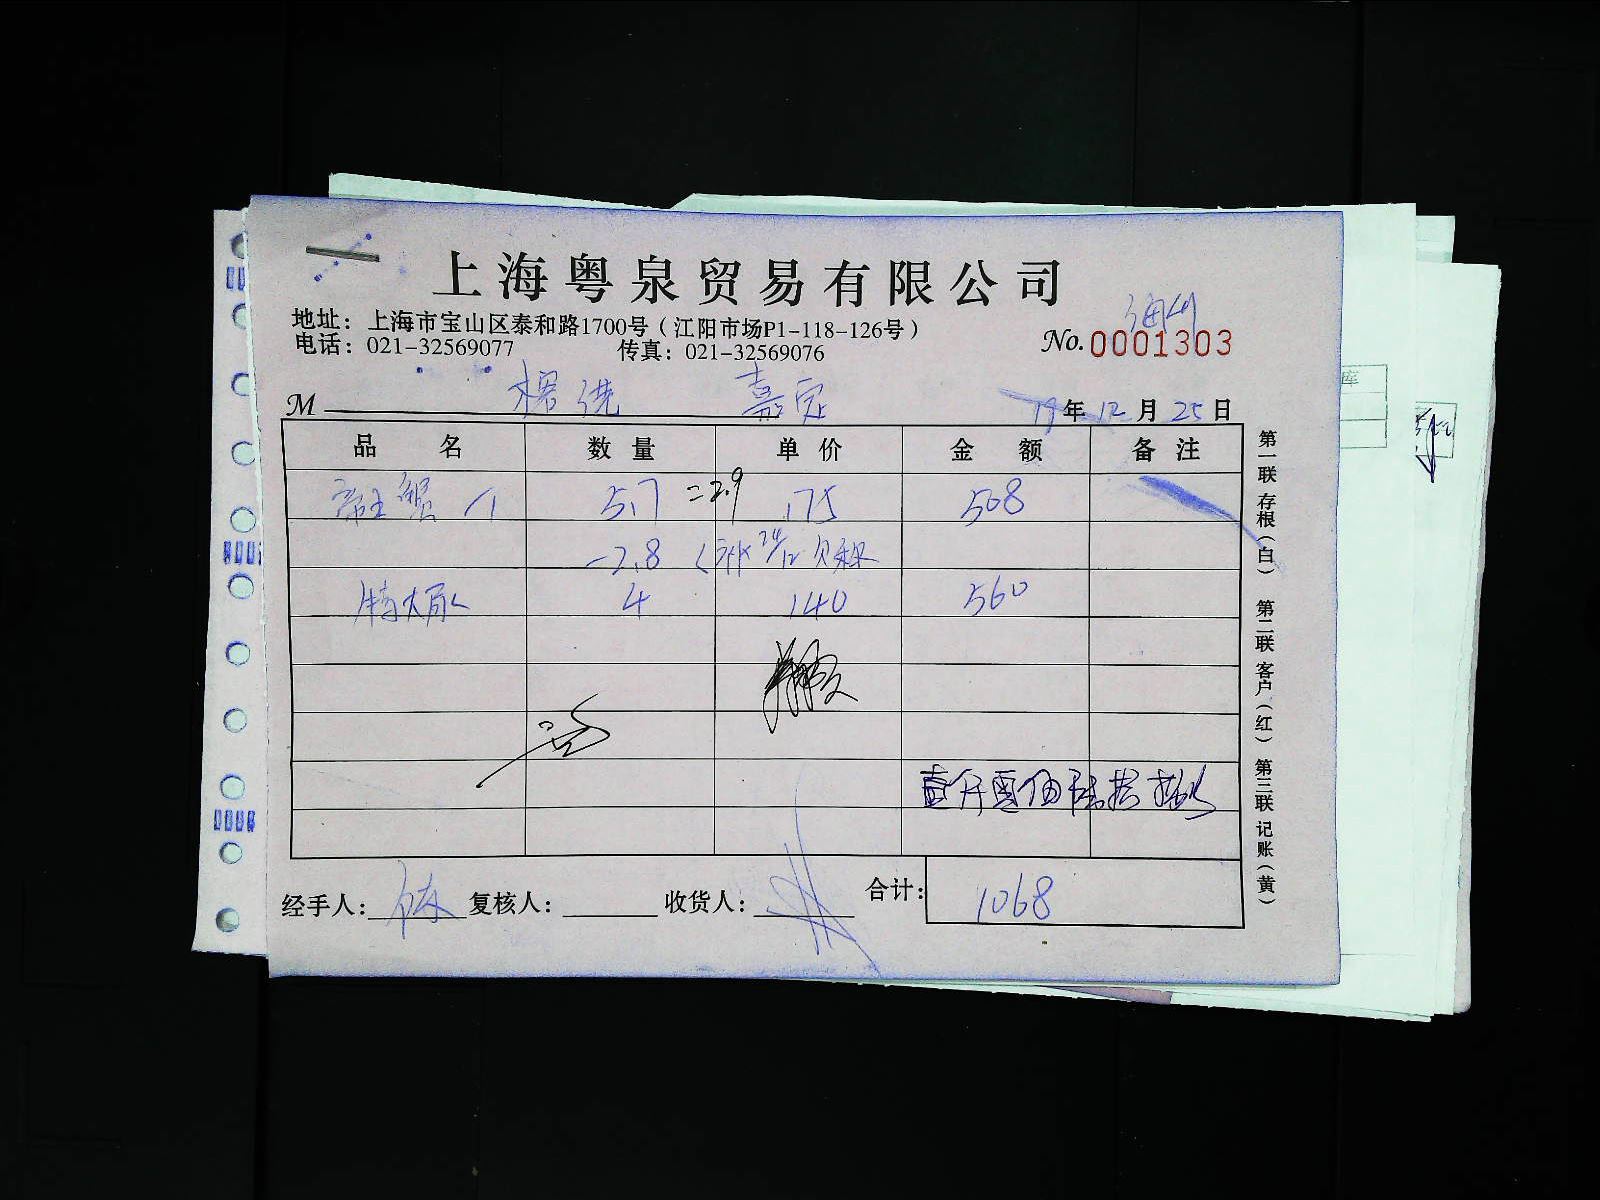 上海粤泉贸易有限公司
地址：上海市宝山区泰和路1700号（江阳市场P1-118-126号）
电话：021-32569077 传真：021-32569076
No. 0001303
M 嘉定 19年12月25日
品名 数量 单价 金额 备注
帝王蟹 1 5.7 =2.9 175 508
-2.8 (补24/12欠称
特大 4 140 560
壹仟零佰陆拾捌
经手人： 复核人： 收货人： 合计：1068
第一联 存根（白） 第二联 客户（红） 第三联 记账（黄）
库